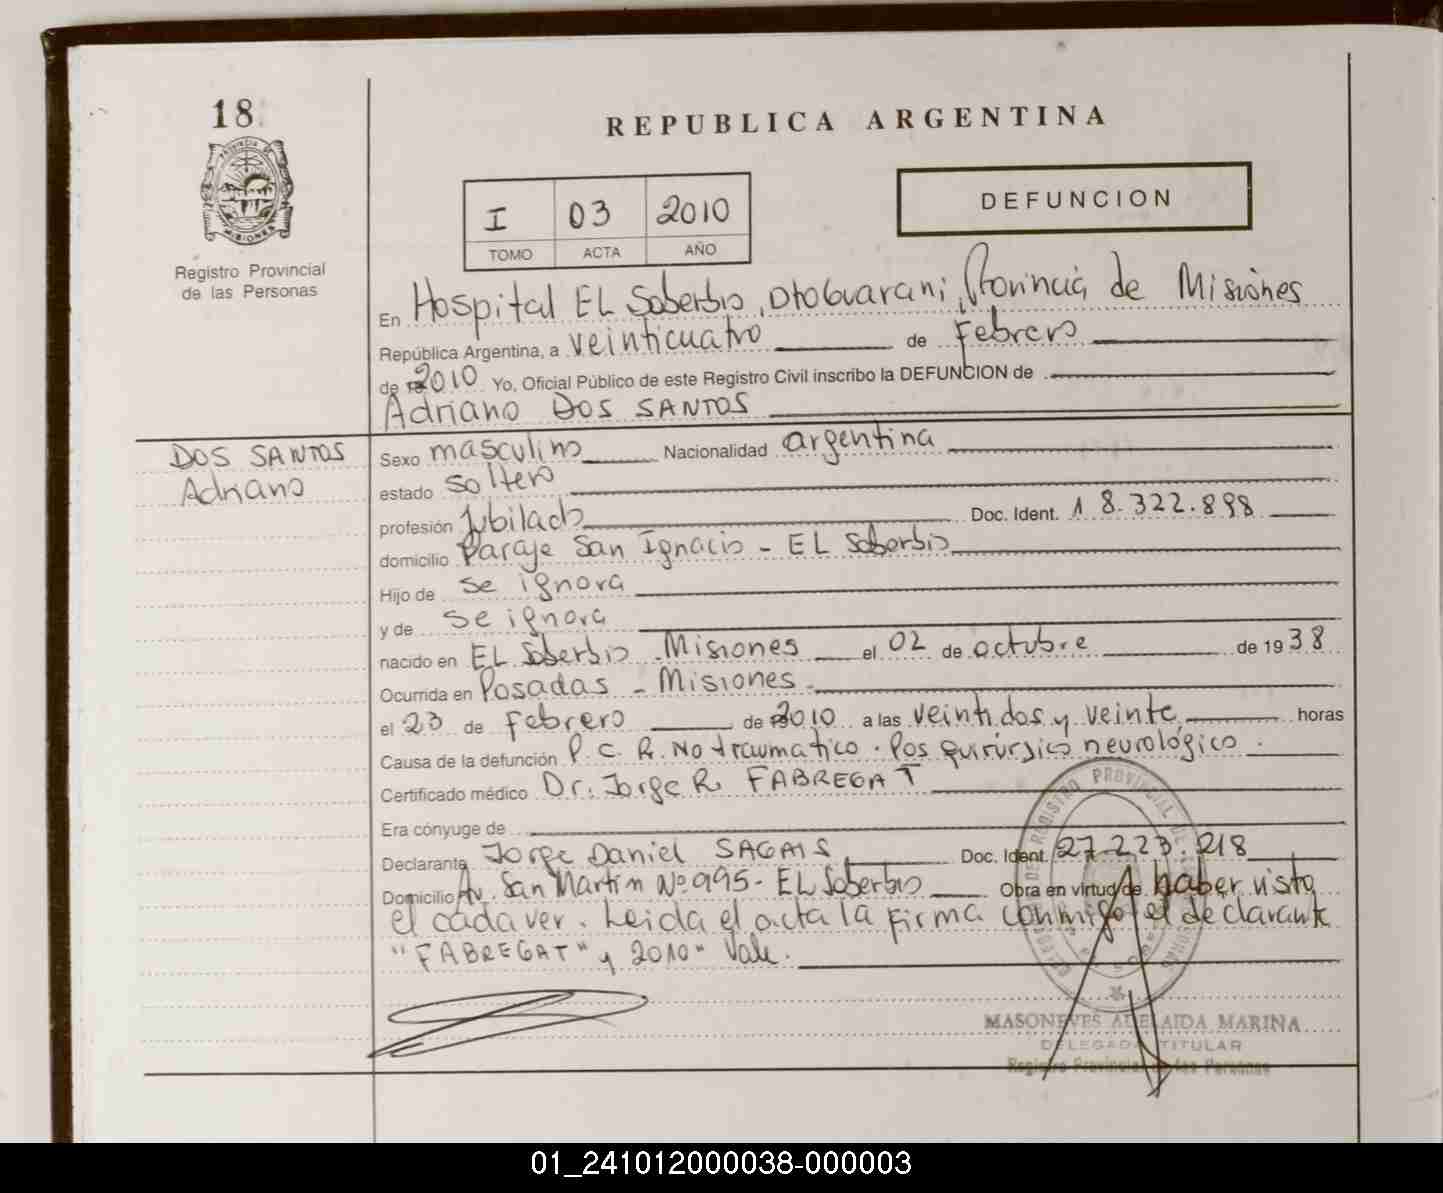 18
REPUBLICA ARGENTINA
DEFUNCION
I 03 2010
TOMO ACTA AÑO
PROVINCIA DE MISIONES
Registro Provincial
de las Personas
En Hospital EL Soberbio, Dto Guarani, Provincia de Misiones
República Argentina, a veinticuatro de Febrero
de 2010 Yo, Oficial Público de este Registro Civil inscribo la DEFUNCION de
Adriano DOS SANTOS
DOS SANTOS
Adriano
Sexo masculino Nacionalidad argentina
estado soltero
profesión Jubilado Doc. Ident. 18.322.898
domicilio Paraje San Ignacio - EL Soberbio
Hijo de se ignora
y de se ignora
nacido en EL Soberbio - Misiones el 02 de octubre de 1938
Ocurrida en Posadas - Misiones
el 23 de Febrero de 2010 a las veintidos y veinte horas
Causa de la defunción P. C. R. No traumatico. Pos quirúrgico neurológico.
Certificado médico Dr. Jorge R. FABREGAT
Era cónyuge de
Declarante Jorge Daniel Doc. Ident. 27.223.218
Domicilio Av. San Martin Nº 995 - EL Soberbio Obra en virtud de haber visto
el cadaver. Leida el acta la firma conmigo el declarante
"FABREGAT" y 2010" Vale.
MASONEVES ADELAIDA MARINA
DELEGADA TITULAR
Registro Provincial de las Personas
01_241012000038-000003